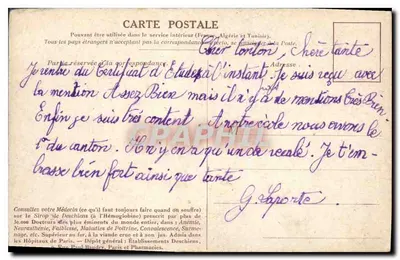 CARTE POSTALE
Pouvant être utilisée dans le service intérieur (France, Algérie et Tunisie).
Tous les pays étrangers n'acceptant pas la correspondance au recto, se renseigner à la Poste.
Partie réservée à la correspondance. Adresse
Cher tonton, chère tante
Je rentre du Certificat d'Etudes à l'instant. Je suis reçu avec
la mention Assez Bien mais il n'y a de mentions très Bien
Enfin je suis très content. A notre école nous avons le
1er du canton. Il n'y en a qu'un de recalé. Je t'em-
brasse bien fort ainsi que tante
G Laporte
Consultez votre Médecin (ce qu'il faut toujours faire quand on souffre)
sur le Sirop de Deschiens (à l'Hémoglobine) prescrit par plus de
Docteurs des plus éminents du monde entier, dans: Anémie,
Neurasthénie, Faiblesse, Maladies de Poitrine, Convalescence, Surme-
nage, etc. Supérieur au fer, à la viande crue et au sang. Admis dans
les Hôpitaux de Paris. — Dépôt général: Etablissements Deschiens,
Rue Paul Baudry, Paris et Pharmacies.